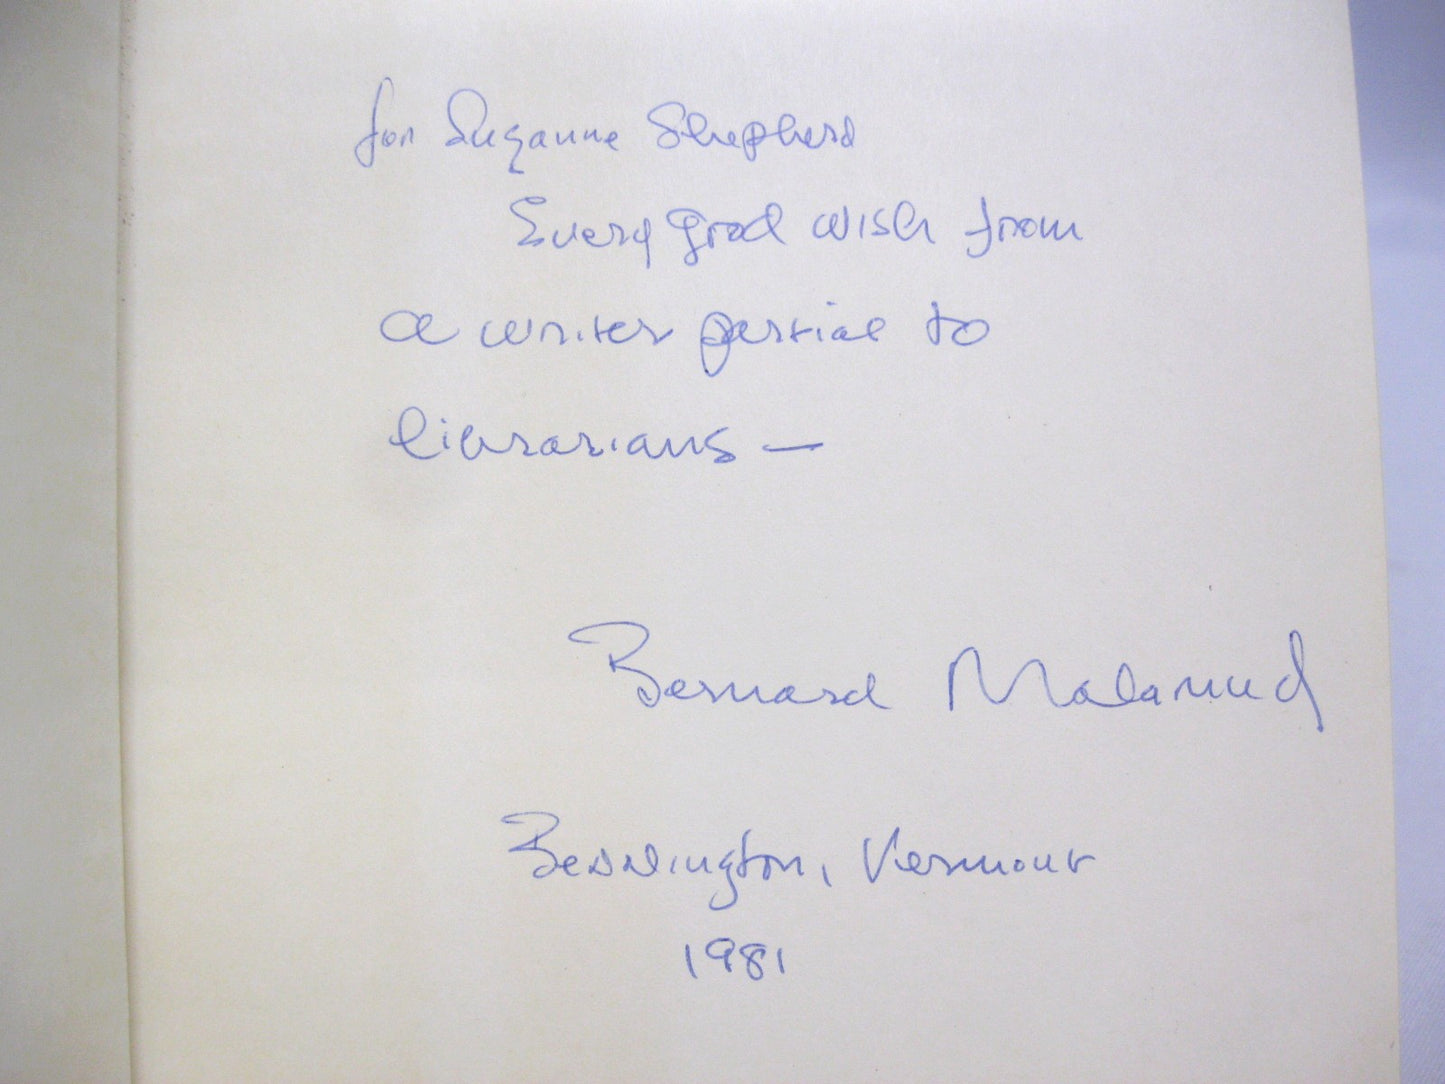 for Suzanne Shepherd
Every good wish from
a writer partial to
librarians —
Bernard Malamud
Bennington, Vermont
1981